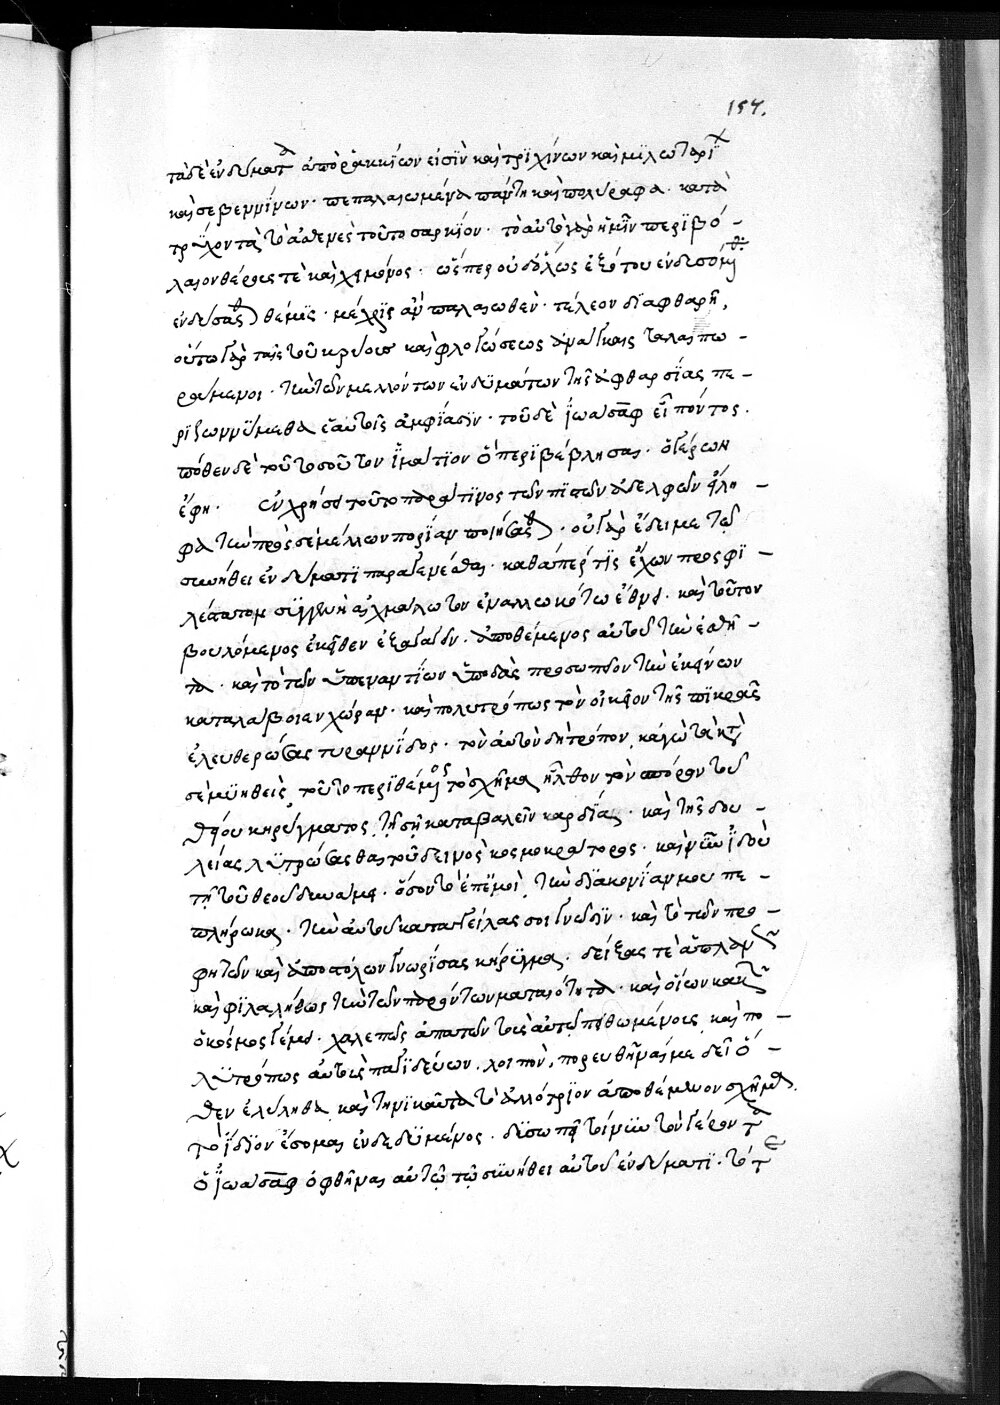 157.
τὰ δὲ ἐνδύματα ἀπὸ ῥακκίων εἰσὶν καὶ τριχίνων καὶ μηλωταρί
καὶ σεβεννίνων. πεπαλαιωμένα πάντη καὶ πολύραφα. κατα
τρύχοντα τὸ ἀσθενὲς τοῦτο σαρκίον. τὸ αὐτὸ γὰρ ἡμῖν περιβό-
λαιον θέρους τὲ καὶ χειμῶνος. ὥσπερ οὐδ' ὅλως ἐξότου ἐνδυσόμεθα
ἐνδύσασθαι θέμις. μέχρις ἂν παλαιωθὲν. τέλεον διαφθαρῆ,
οὕτω γὰρ ταῖς τοῦ κρύους καὶ φλογώσεως ἀνάγκαις ταλαιπω-
ρούμενοι. τὴν τῶν μελλόντων ἐνδυμάτων τῆς ἀφθαρσίας πε-
ριζωννύμεθα ἑαυτοῖς ἀμφίασιν. τοῦ δὲ ἰωάσαφ εἰπόντος.
πόθεν δὲ τοῦτο σοῦ τὸν ἱμάτιον ὃ περιβέβλησαι. ὁ γέρων
ἔφη. ἐν χρήσει τοῦτο παρά τινος τῶν πιστῶν ἀδελφῶν εἴλη-
φα τὴν πρὸς σὲ μέλλων πορίαν ποιήσασθαι. οὐ γὰρ ἔδει με τῶ
συνήθει ἐνδύματι παραγενέσθαι. καθάπερ τίς ἔχων προσφι-
λέστατον συγγενῆ αἰχμάλωτον ἐν ἀλλωκότω ἔθνει. καὶ τοῦτον
βουλόμενος ἐκεῖθεν ἐξαγαγεῖν. ἀποθέμενος αὐτοῦ τὴν ἐσθῆ-
τα. καὶ τὸ τῶν ὑπεναντίων ὑποδὺς προσωπεῖον τὴν ἐκείνων
καταλάβοι ἂν χώραν. καὶ πολυτρόπως τὸν οἰκεῖον τῆς πικρᾶς
ἐλευθερώσας τυραννίδος. τὸν αὐτὸν δὴ τρόπον, κἀγὼ τὰ κατὰ
σὲ μυηθεὶς, τοῦτο περιθέμενος τὸ σχῆμα ἦλθον τὸν σπόρον τοῦ
θείου κηρύγματος, τῆ σῆ καταβαλεῖν καρδίᾳ. καὶ τῆς δου-
λείας λυτρώσασθαι τοῦ δεινοῦ κοσμοκράτορος. καὶ νῦν ἰδοὺ
τῆ τοῦ θεοῦ δυνάμει. ὅσον τὸ ἐπ' ἐμοὶ τὴν διακονίαν μου πε-
πλήρωκα. τὴν αὐτοῦ καταγγείλας σοι γνῶσιν. καὶ τὸ τῶν προ-
φητῶν καὶ ἀποστόλων γνωρίσας κήρυγμα. δείξας τὲ ἀπλανῶς
καὶ φιλαλήθως τὴν τῶν παρόντων ματαιότητα. καὶ οἵων κακῶν
ὁ κόσμος γέμει. χαλεπῶς ἀπατῶν τοὺς αὐτῶ πειθωμένους, καὶ πο-
λυτρόπως αὐτοὺς παγιδεύων. λοιπὸν, πορευθῆναί με δεῖ ὅ-
θεν ἐλήλυθα, καὶ τηνικαῦτα τὸ ἀλλότριον ἀποθέμενον σχῆμα.
τὸ ἴδιον ἔσομαι ἐνδεδυμένος. δυσωπεῖ τοίνυν τὸν γέροντα
ὁ ἰωάσαφ ὀφθῆναι αὐτῶ τῶ συνήθει αὐτοῦ ἐνδύματι. τότε